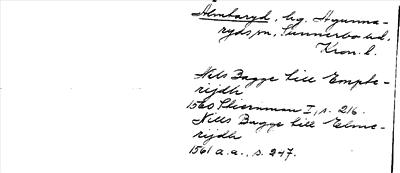 Elmtaryd, hg. Agunna-
ryds sn, Sunnerbo hd,
Kron. l.
Nils Bagge till Empte-
rijdh
1560 Stiernman I, s. 216.
Nills Bagge till Elme-
rijdh
1561 a.a., s. 247.